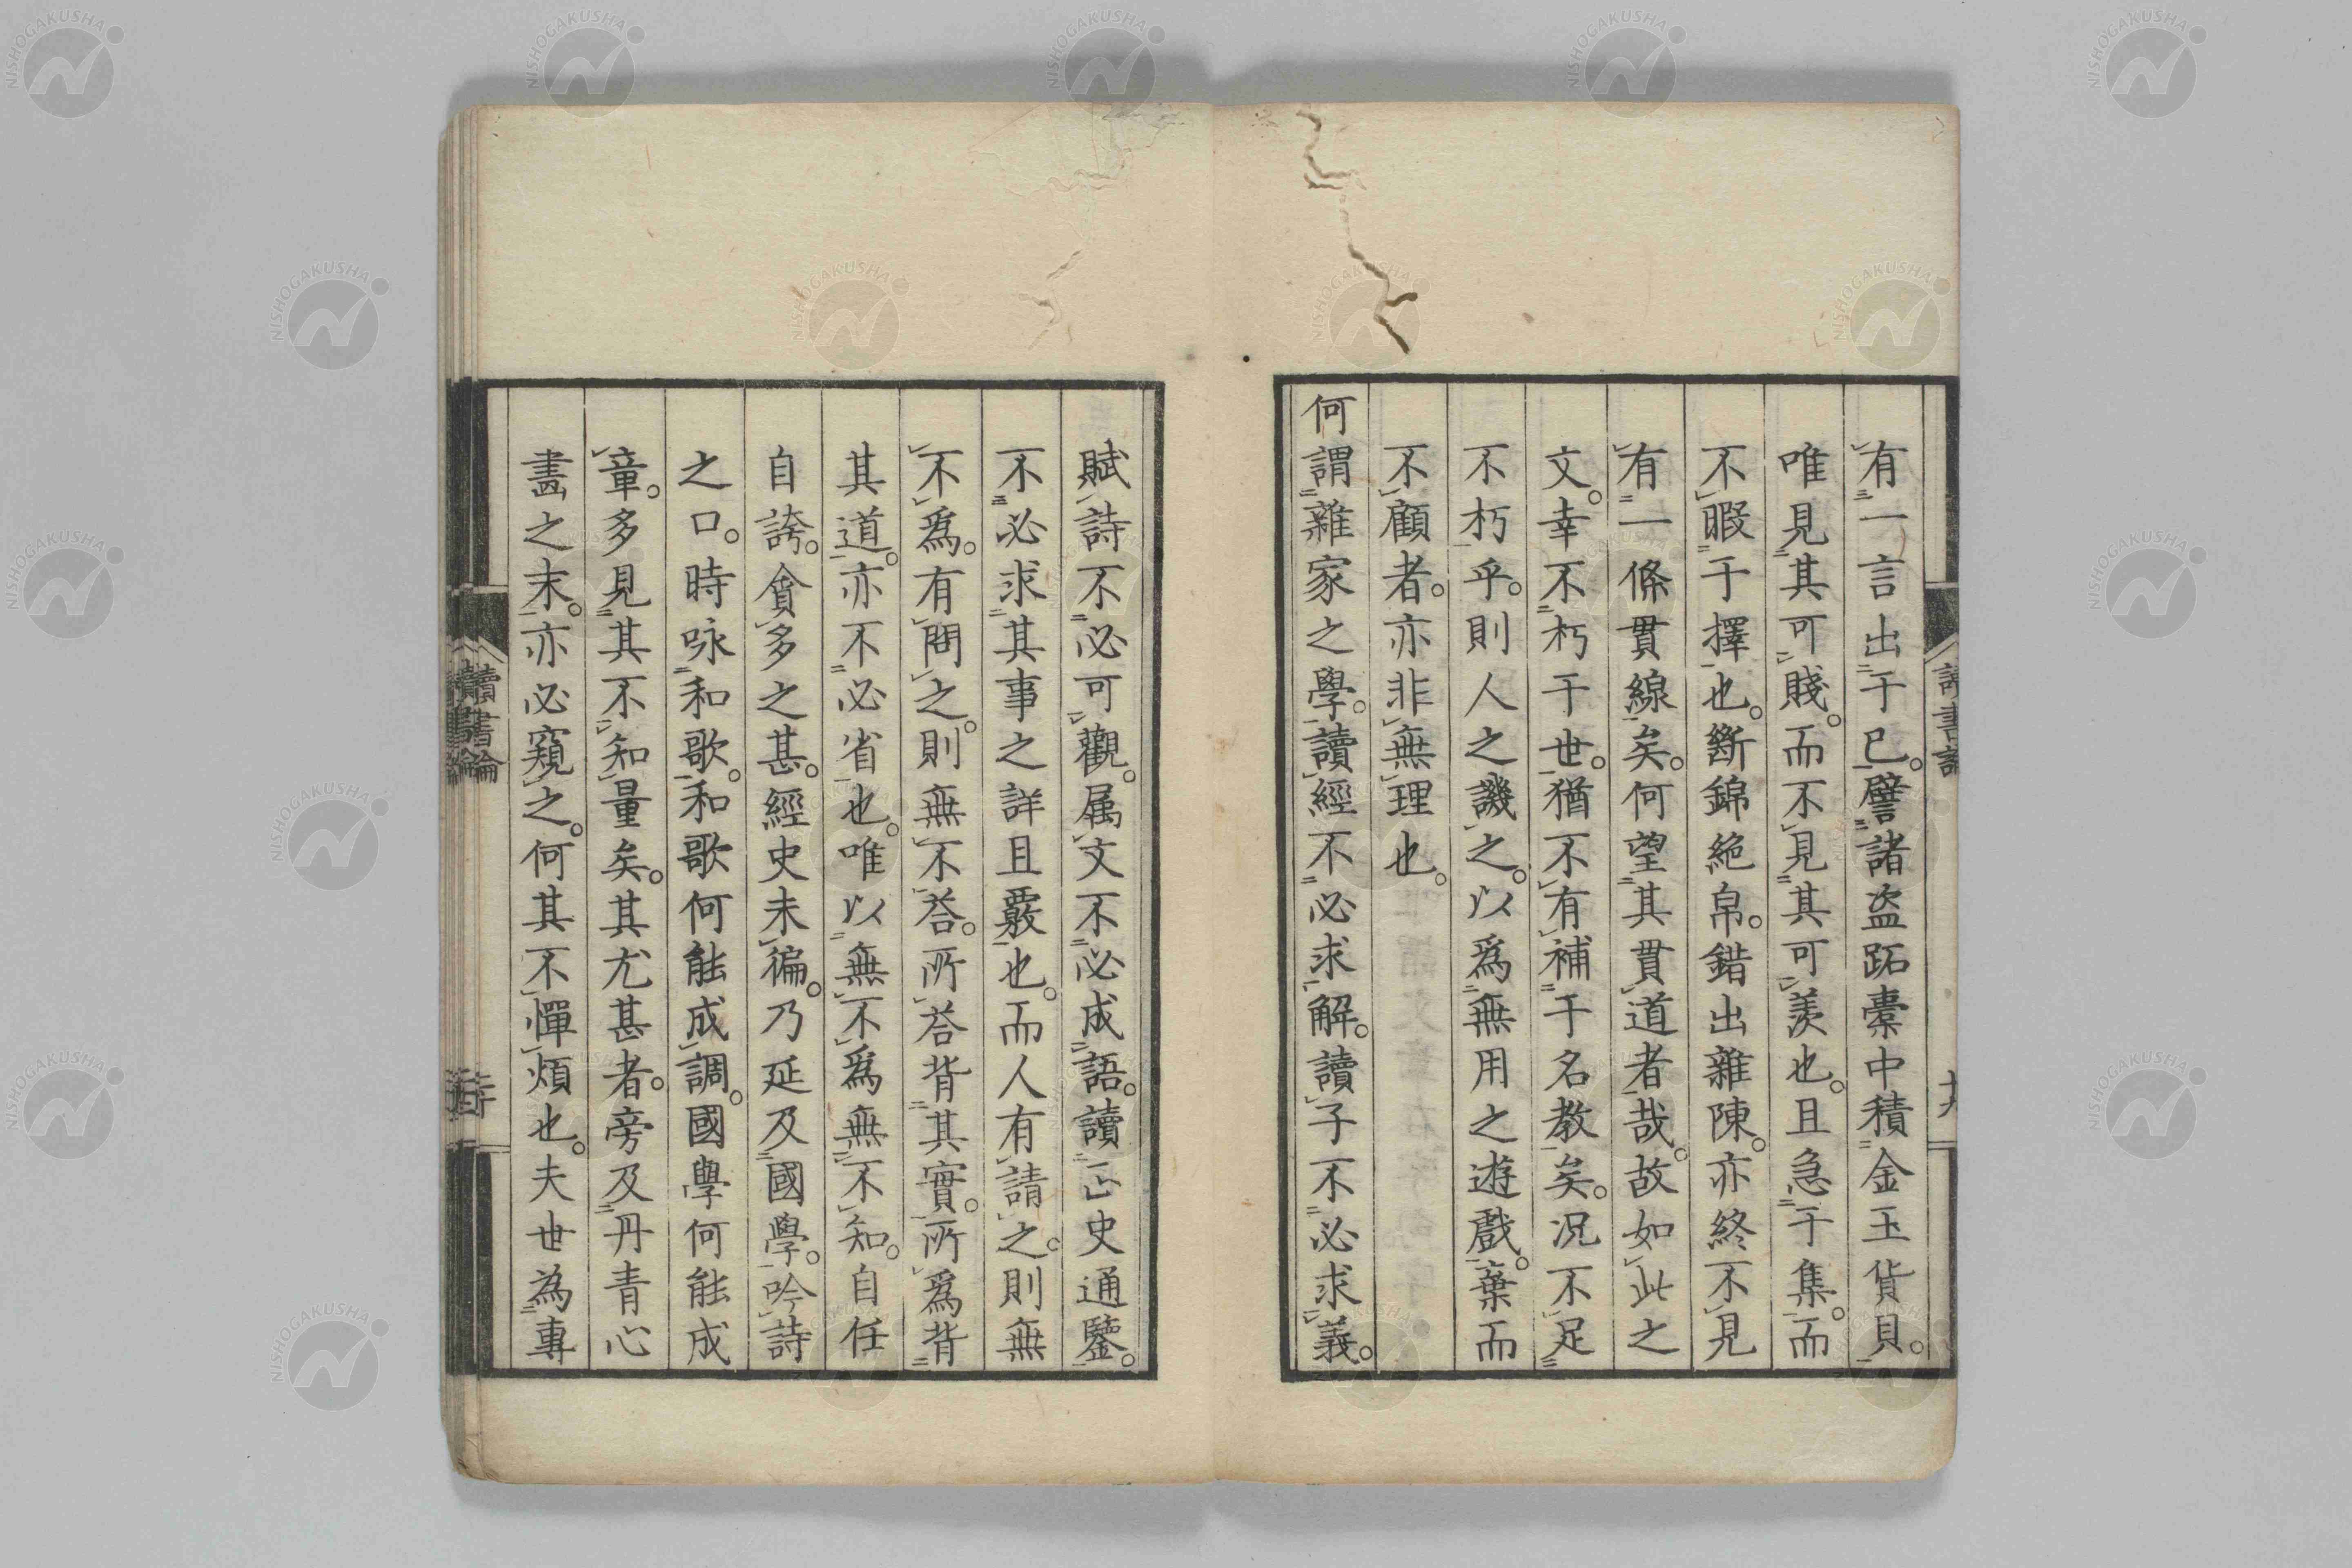 有一言出于已。譬諸盗跖橐中積金玉貨貝。
唯見其可賤。而不見其可羨也。且急于集。而
不暇于擇也。斷錦絶帛。錯出雜陳。亦終不見
有一條貫線矣。何望其貫道者哉。故如此之
文。幸不朽于世。猶不有補于名教矣。況不足
不朽乎。則人之譏之。以爲無用之遊戲。棄而
不顧者。亦非無理也。
何謂雜家之學。讀經不必求解。讀子不必求義。
賦詩不必可觀。属文不必成語。讀正史通鑒。
不必求其事之詳且覈也。而人有請之。則無
不爲。有問之。則無不荅。所荅背其實。所爲背
其道。亦不必省也。唯以無不爲無不知。自任
自誇。貪多之甚。經史未徧。乃延及國學。吟詩
之口。時咏和歌。和歌何能成調。國學何能成
章。多見其不知量矣。其尤甚者。旁及丹青心
畫之末。亦必窺之。何其不憚煩也。夫世為專
讀書論
十九
NISHOGAKUSHA